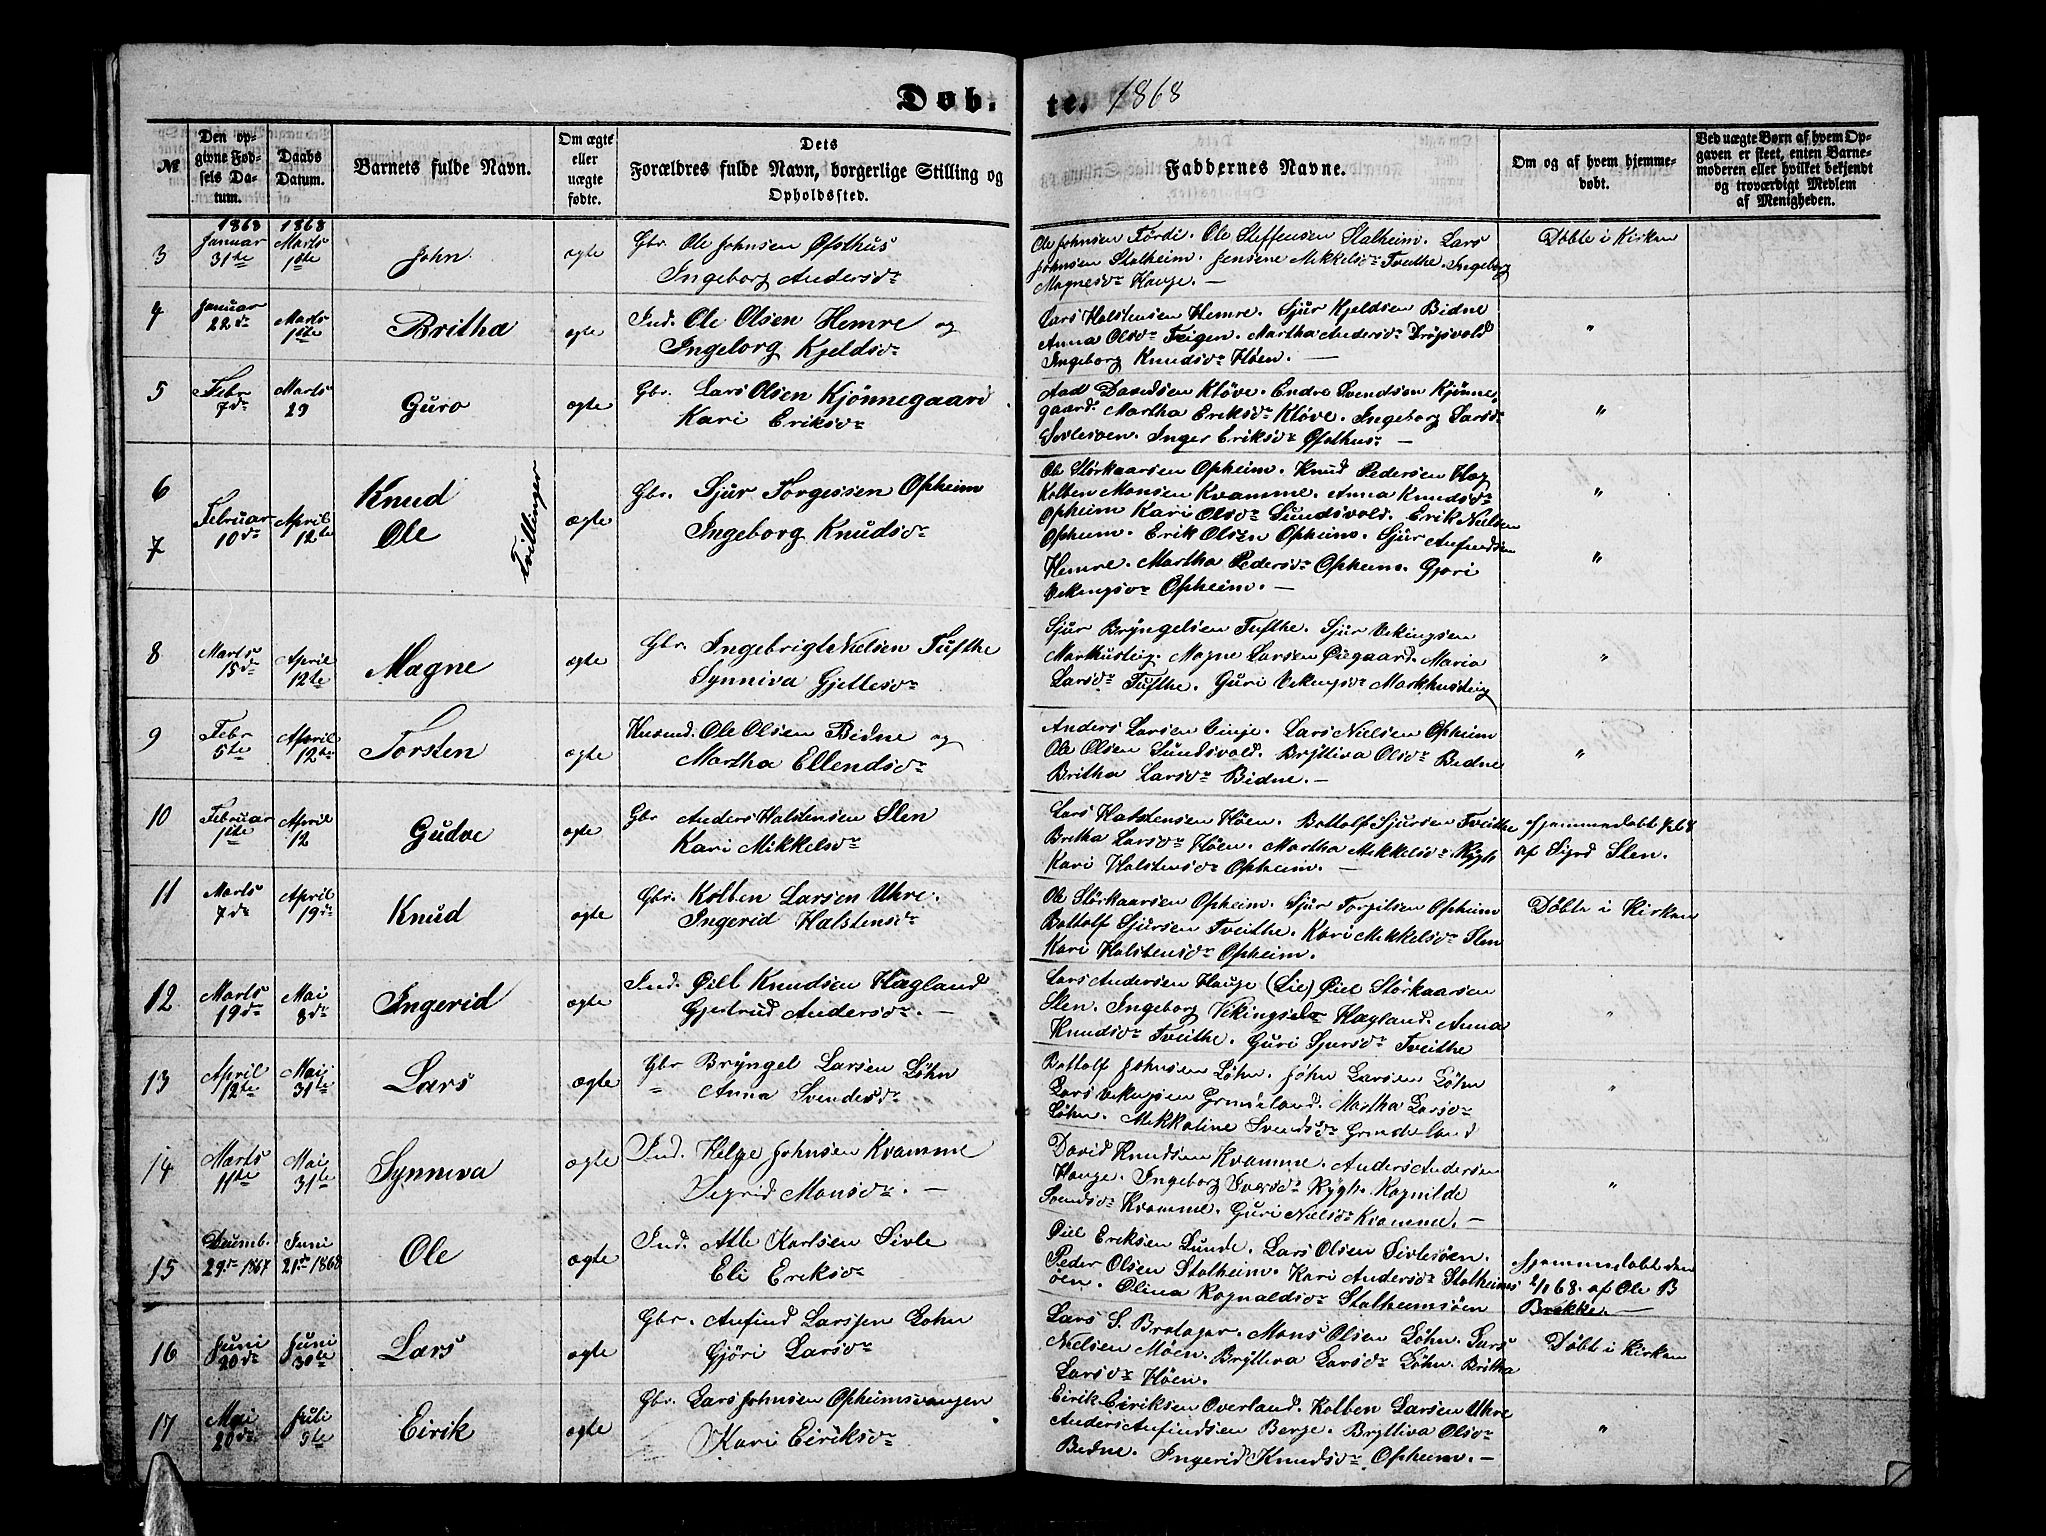 Døb-
te. 1868
№
Den op-
givne Fød-
sels Da-
tum.
Daabs
Datum.
Barnets fulde Navn.
Om ægte
eller
uægte
fødte.
Dets
Forældres fulde Navn, borgerlige Stilling og
Opholdssted.
Faddernes Navne.
Om og af hvem hjemme-
døbt.
Ved uægte Børn af hvem Op-
gaven er skeet, enten Barne-
moderen eller hvilket bekjendt
og troværdigt Medlem
af Menigheden.
1868 1868
3 Januar 31te Marts 1ste John ægte
Gbr. Ole Johnsen Øfsthus
Ingeborg Andersdr
Ole Johnsen Fördi. Ole Steffensen Stalheim. Lars
Johnsen Stalheim. Jensene Mikkelsdr Tveithe. Ingeborg
Magnesdr Hauge. —
Døbte i Kirken
4 Januar 22de Marts 1ste Britha ægte
Ind. Ole Olsen Hemre og
Ingeborg Kjeldsdr
Lars Halstensen Hemre. Sjur Kjeldsen Bidne
Anna Olsdr Teigen. Martha Andersdr
Ingeborg Knudsdr Høen. —
"
5 Febr 7de Marts 29 Guro ægte
Gbr. Lars Olsen Kjönnegaard
Kari Eriksdr
Aad Davidsen Kløve. Endre Svendsen Kjönne-
gaard. Martha Eriksdr Kløve. Ingeborg Larsdr
Sivlesøen. Inger Eriksdr Øfsthus. —
"
6
7
Februar 10de April 12te
Knud
Ole
Tvillinger
ægte
Gbr. Sjur Torgessen Opheim
Ingeborg Knudsdr
Ole Störkaarsen Opheim. Knud Pedersen Hag
Kolben Monsen Kvamme. Anna Knudsdr
Opheim Kari Olsdr Sundsvold. Erik Nielsen
Opheim. Erik Olsen Opheim. Sjur Anfindsen
Hemre. Martha Pedersdr Opheim. Gjöri
Vekingsdr Opheim. —
"
"
8 Marts 15de April 12te Magne ægte
Gbr. Ingebrigt Nielsen Tufthe
Synniva Gjellesdr
Sjur Bryngelsen Tufthe. Sjur Vekingsen
Markhusteig. Magne Larsen Øiegaard. Maria
Larsdr Tufthe. Guri Vekingsdr Markhusteig
"
9 Febr 5te April 12te Torsten ægte
Husmd. Ole Olsen Bidne og
Martha Ellendsdr
Anders Larsen Ginje. Lars Nielsen Opheim
Ole Olsen Sundsvold. Bryttiva Olsdr Bidne
Britha Larsdr Bidne. —
"
10 Februar 1ste April 12 Gudve ægte
Gbr Anders Halstensen Slen
Kari Mikkelsdr
Lars Halstensen Høen. Bottolf Sjursen Tveithe
Britha Larsdr Høen. Martha Mikkelsdr Rygh
Kari Halstensdr Opheim. —
Hjemmedøbt
af Sjurd Slen.
11 Marts 7de April 19de Knud ægte
Gbr. Kolben Larsen Uhre.
Ingerid Halstensdr
Ole Störkaarsen Opheim. Sjur Torgilsen Opheim
Bottolf Sjursen Tveithe. Kari Mikkelsdr Slen
Kari Halstensdr Opheim.
Døbte i Kirken
12 Marts 19de Mai 8de Ingerid ægte
Ind. Øill Knudsen Hagland
Gjertrud Andersdr. —
Lars Andersen Hauge (Lie) Øiel Störkaarsen
Slen. Ingeborg Vikingsdr Hagland. Anna
Knudsdr Tveithe. Guri Sjursdr Tveithe
"
13 April 12te Mai 31te Lars ægte
Gbr Bryngel Larsen Løhn
" Anna Svendsdr
Bottolf Johnsen Løhn. John Larsen Løhn
Lars Vekingsen Grindeland. Martha Larsdr
Løhn. Mikkaline Svendsdr Grindeland
"
14 Marts 11te Mai 31te Synniva ægte
Ind. Helge Johnsen Kvamme
Sigrid Monsdr. —
David Knudsen Kvamme. Anders Andersen
Hauge. Ingeborg Iversdr Rygh. Ragnilde
Svendsdr Kvamme. Guri Nielsdr Kvamme. —
"
15 Decemb. 29de 1867 Juni 21de 1868 Ole ægte
Ind. Atle Karlsen Sivle
Eli Eriksdr
Øiel Eriksen Lunde. Lars Olsen Sivlesøen.
Peder Olsen Stalheim. Kari Andersdr Stalheims
øen. Olina Ragnaldsdr Stalheimsøen
Hjemmedøbt den
2/1 68. af Ole B
Brekke. —
16 Juni 20de Juni 30te Lars ægte
Gbr. Anfind Larssen Løhn
Gjöri Larsdr
Lars S. Bratager. Mons Olsen Løhn. Lars
Nielsen Møen. Bryttiva Larsdr Løhn. Britha
Larsdr Høen.
Døbte i Kirken
17 Mai 20de Juli 5te Eirik ægte
Gbr. Lars Johnsen Opheimsvangen
Kari Eiriksdr
Eirik Eiriksen Overland. Kolben Larsen Uhre
Anders Anfindsen Berge. Bryttiva Olsdr
Bidne. Ingerid Knudsdr Opheim. —
"